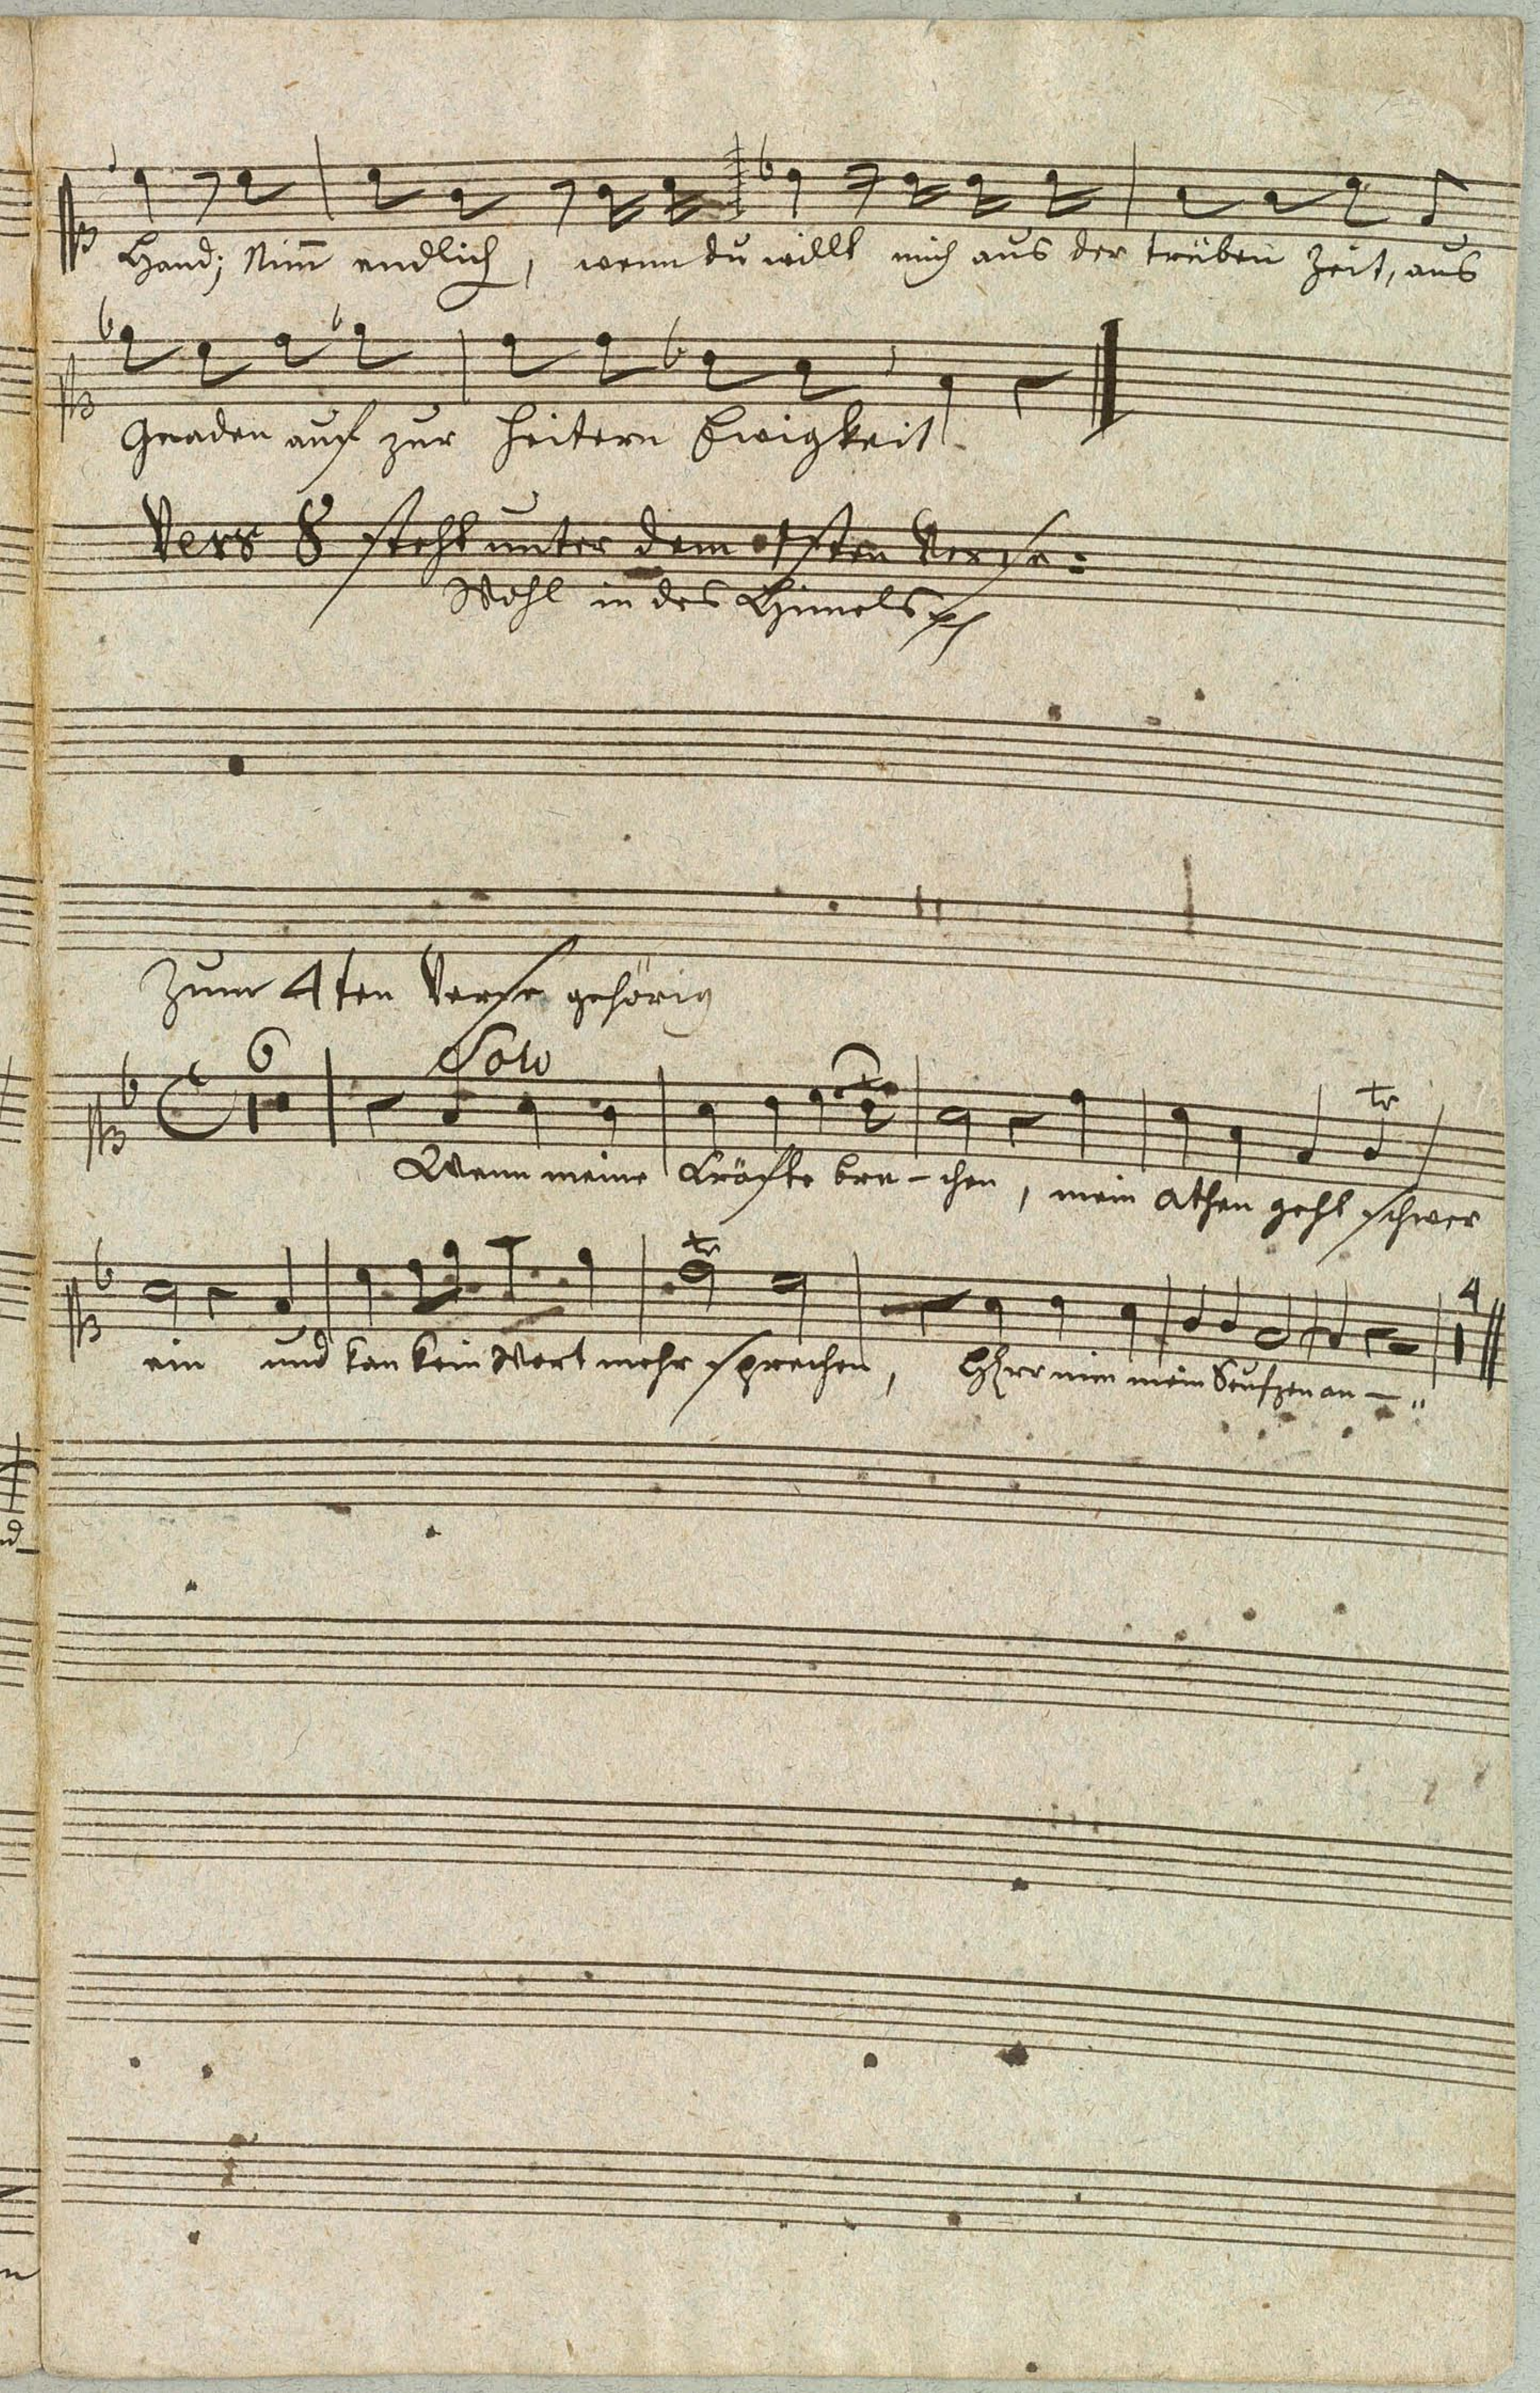 Hand; Nim̄ endlich, wenn du willt mich aus der trüben Zeit, aus
Gnaden auf zur heitern Ewigkeit.
Vers 8 steht unter dem 1sten Verse:
Wohl in des Himels
Zum 4ten Verse gehörig
6 Solo
tr
Wenn meine Kräfte bre-chen, mein athen geht schwer
tr 4
ein und kan kein Wort mehr sprechen, HErr nim mein Seufzen an -"